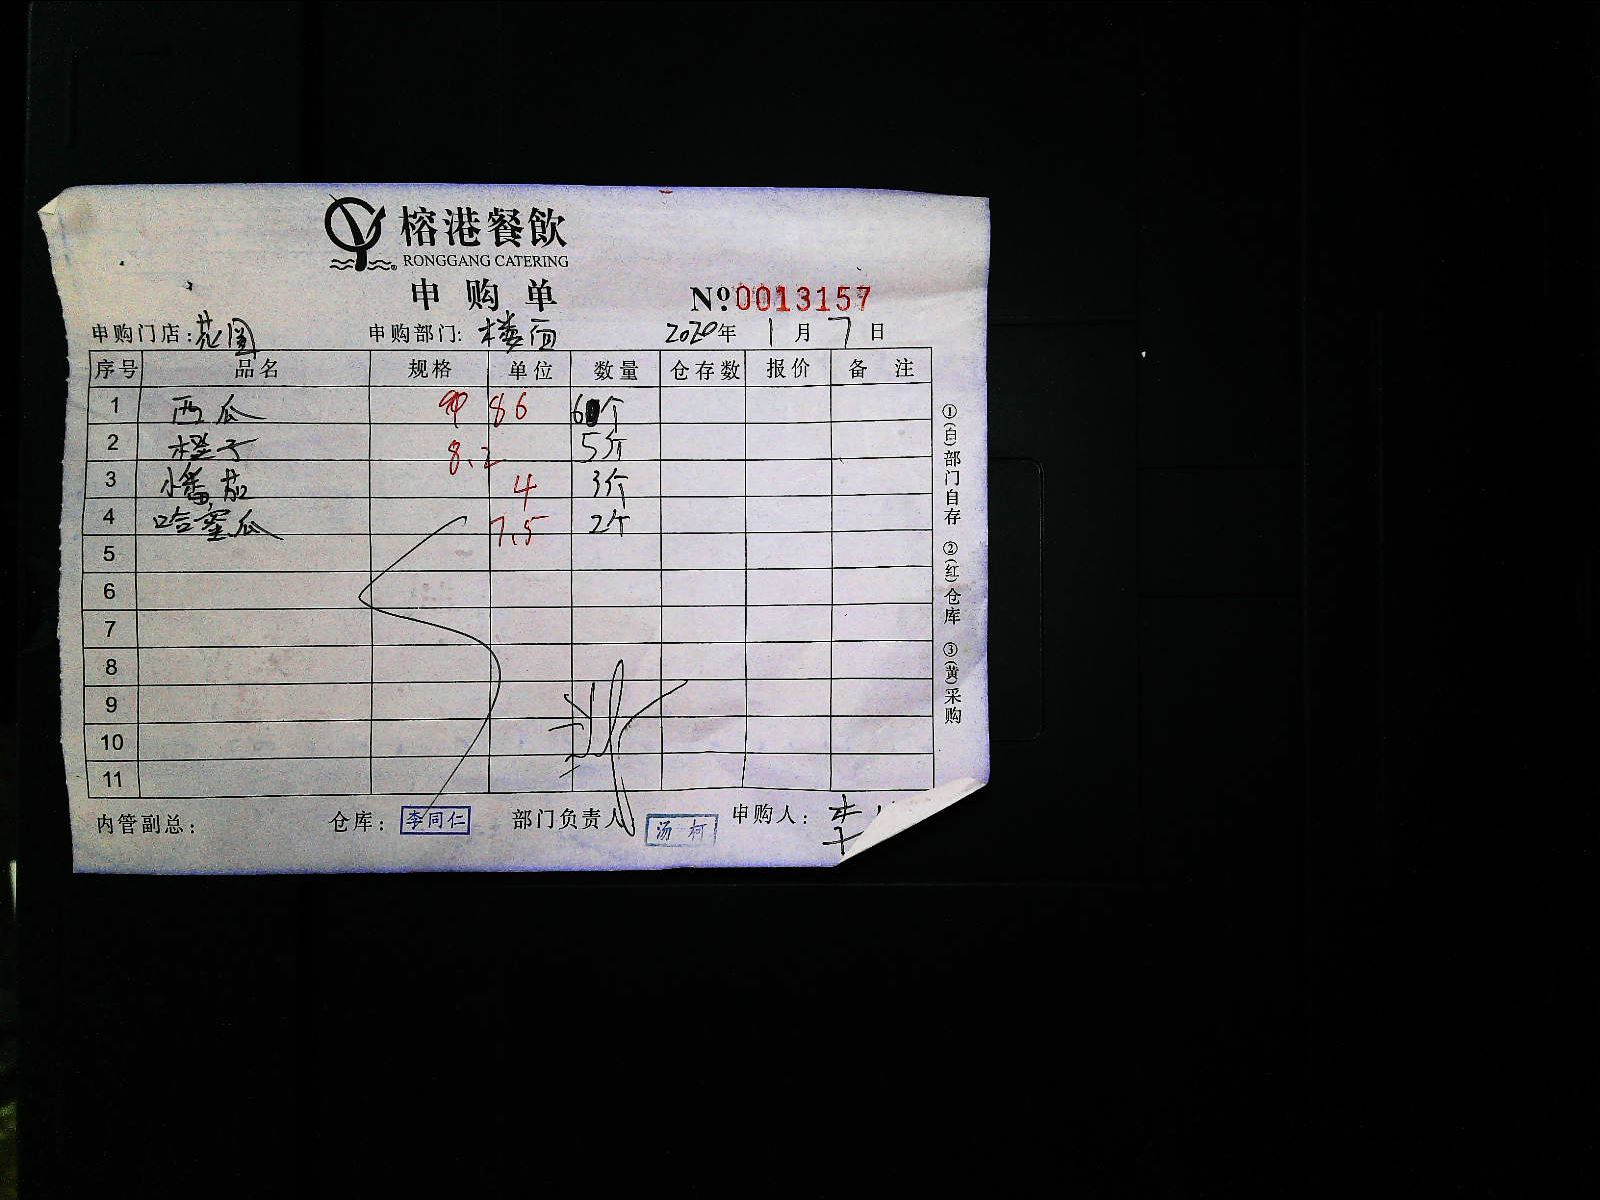 榕港餐飲
RONGGANG CATERING
申购单
Nº0013157
申购门店：花園 申购部门：楼面 2020年 1月 7日
序号 品名 规格 单位 数量 仓存数 报价 备注
1 西瓜 86 6个
2 橙子 8.2 5个
3 小番茄 4 3个
4 哈蜜瓜 7.5 2个
5
6
7
8
9
10
11
内管副总： 仓库：李同仁 部门负责人 汤柯 申购人：
①(白)部门自存 ②(红)仓库 ③(黄)采购